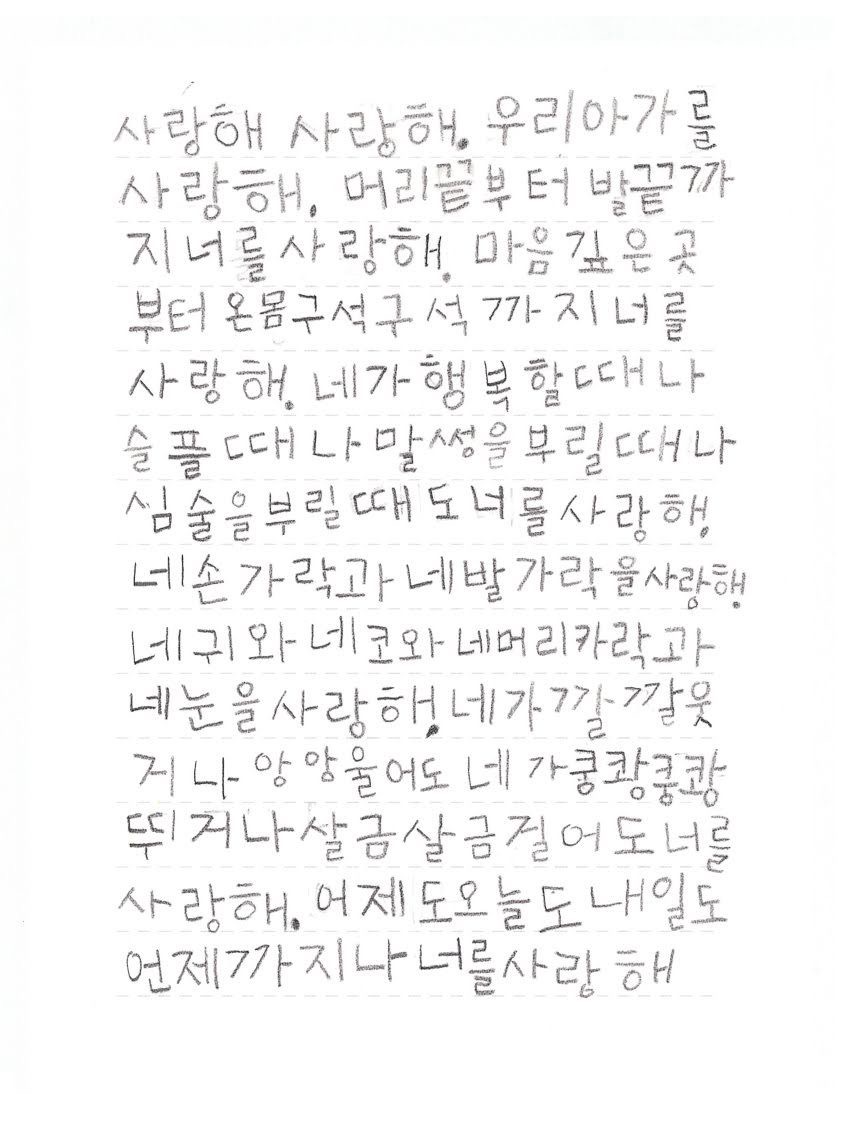 사랑해 사랑해. 우리아가를
사랑해. 머리끝부터 발끝까
지 너를 사랑해. 마음 깊은 곳
부터 온몸구석구석 까지 너를
사랑해. 네가 행복할때나
슬플때나 말썽을 부릴때나
심술을 부릴때도 너를 사랑해.
네손가락과 네발가락을사랑해.
네귀와 네코와 네머리카락과
네눈을 사랑해. 네가 낄깔웃
거나 앙앙울어도 네가쿵쾅쿵쾅
뛰거나 살금살금걸어도 너를
사랑해. 어제도오늘도 내일도
언제까지나 너를사랑해